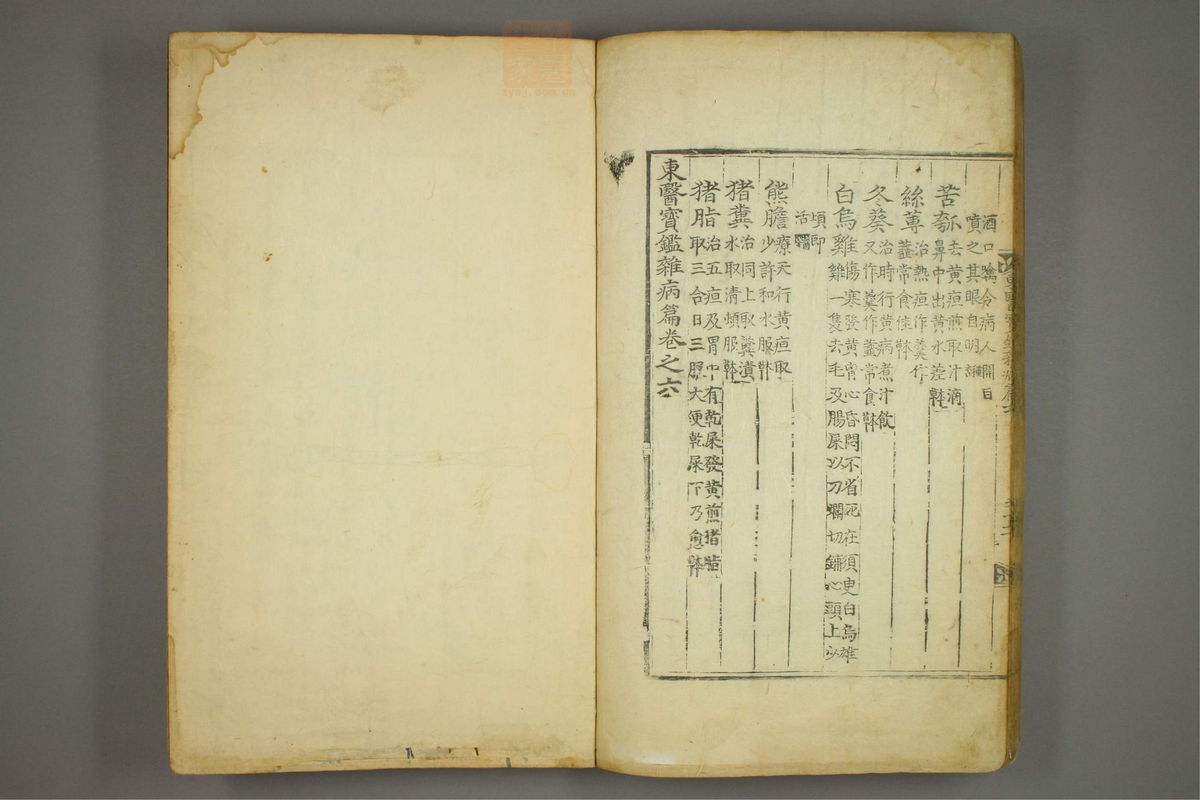 酒口噙令病人開目
噴之其眼自明
苦瓠去黃疸煎取汁滴
鼻中出黃水差本
絲蓴治熱疸作羹作
虀常食佳本
冬葵治時行黃病煮汁飮
又作羹作虀常食本
白烏雞傷寒發黃胷心昏悶不省死在須臾白烏雄
雞一隻去毛及腸屎以刀爛切鋪心頭上以
頃即
活
熊膽療天行黃疸取
少許和水服本
猪糞治同上取糞漬
水取清頓服本
猪脂治五疸及胃中有乾屎發黃煎猪脂
取三合日三服大便乾屎下乃愈本
東醫寶鑑雜病篇卷之六
xysj.com.cn